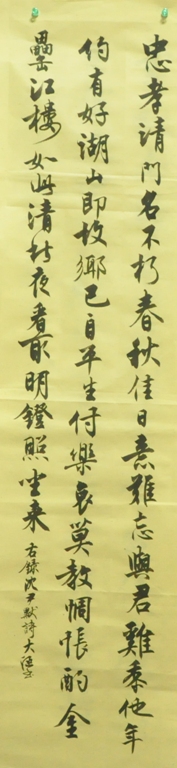 忠孝清門名不朽春秋佳日意難忘與君雞黍他年
約有好湖山即故鄉已自平生付樂哀莫教惆悵酌金
罍江樓如此清於夜看取明鐙照坐來
右錄沈尹默詩大